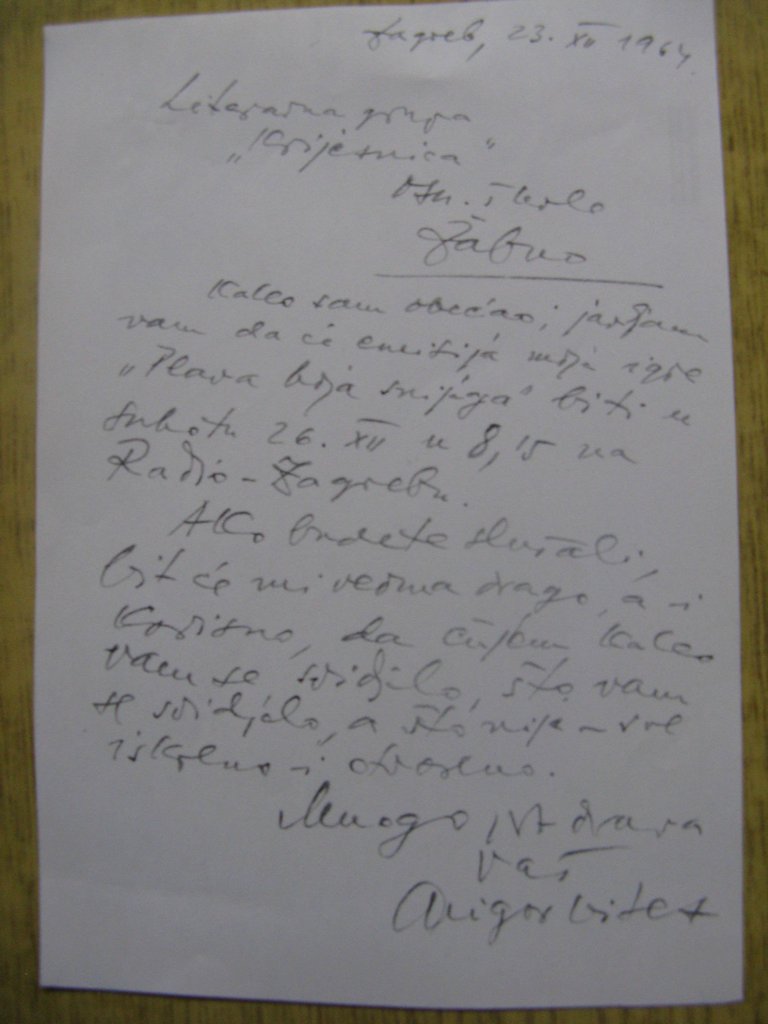 Zagreb, 23. XII 1964.
Literarna grupa
„Krijesnica"
Osn. škola
Žabno
Kako sam obećao, javljam
vam da će emisija moje igre
„Plava boja snijega" biti u
subotu 26. XII u 8,15 na
Radio-Zagrebu.
Ako budete slušali,
bit će mi veoma drago, a i
korisno, da čujem kako
vam se svidjelo, što vam
se svidjelo, a što nije - sve
iskreno i otvoreno.
Mnogo pozdrava
vaš
Grigor Vitez